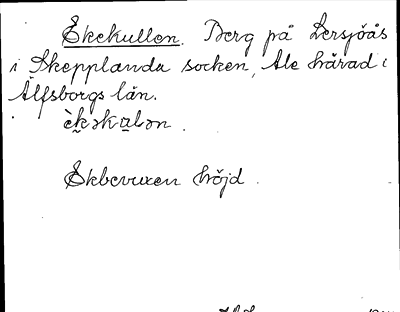 Ekekullen. Berg på Lersjöås
i Skepplanda socken, Ale härad i
Älfsborgs län.
èkəkulən.
Ekbevuxen höjd.